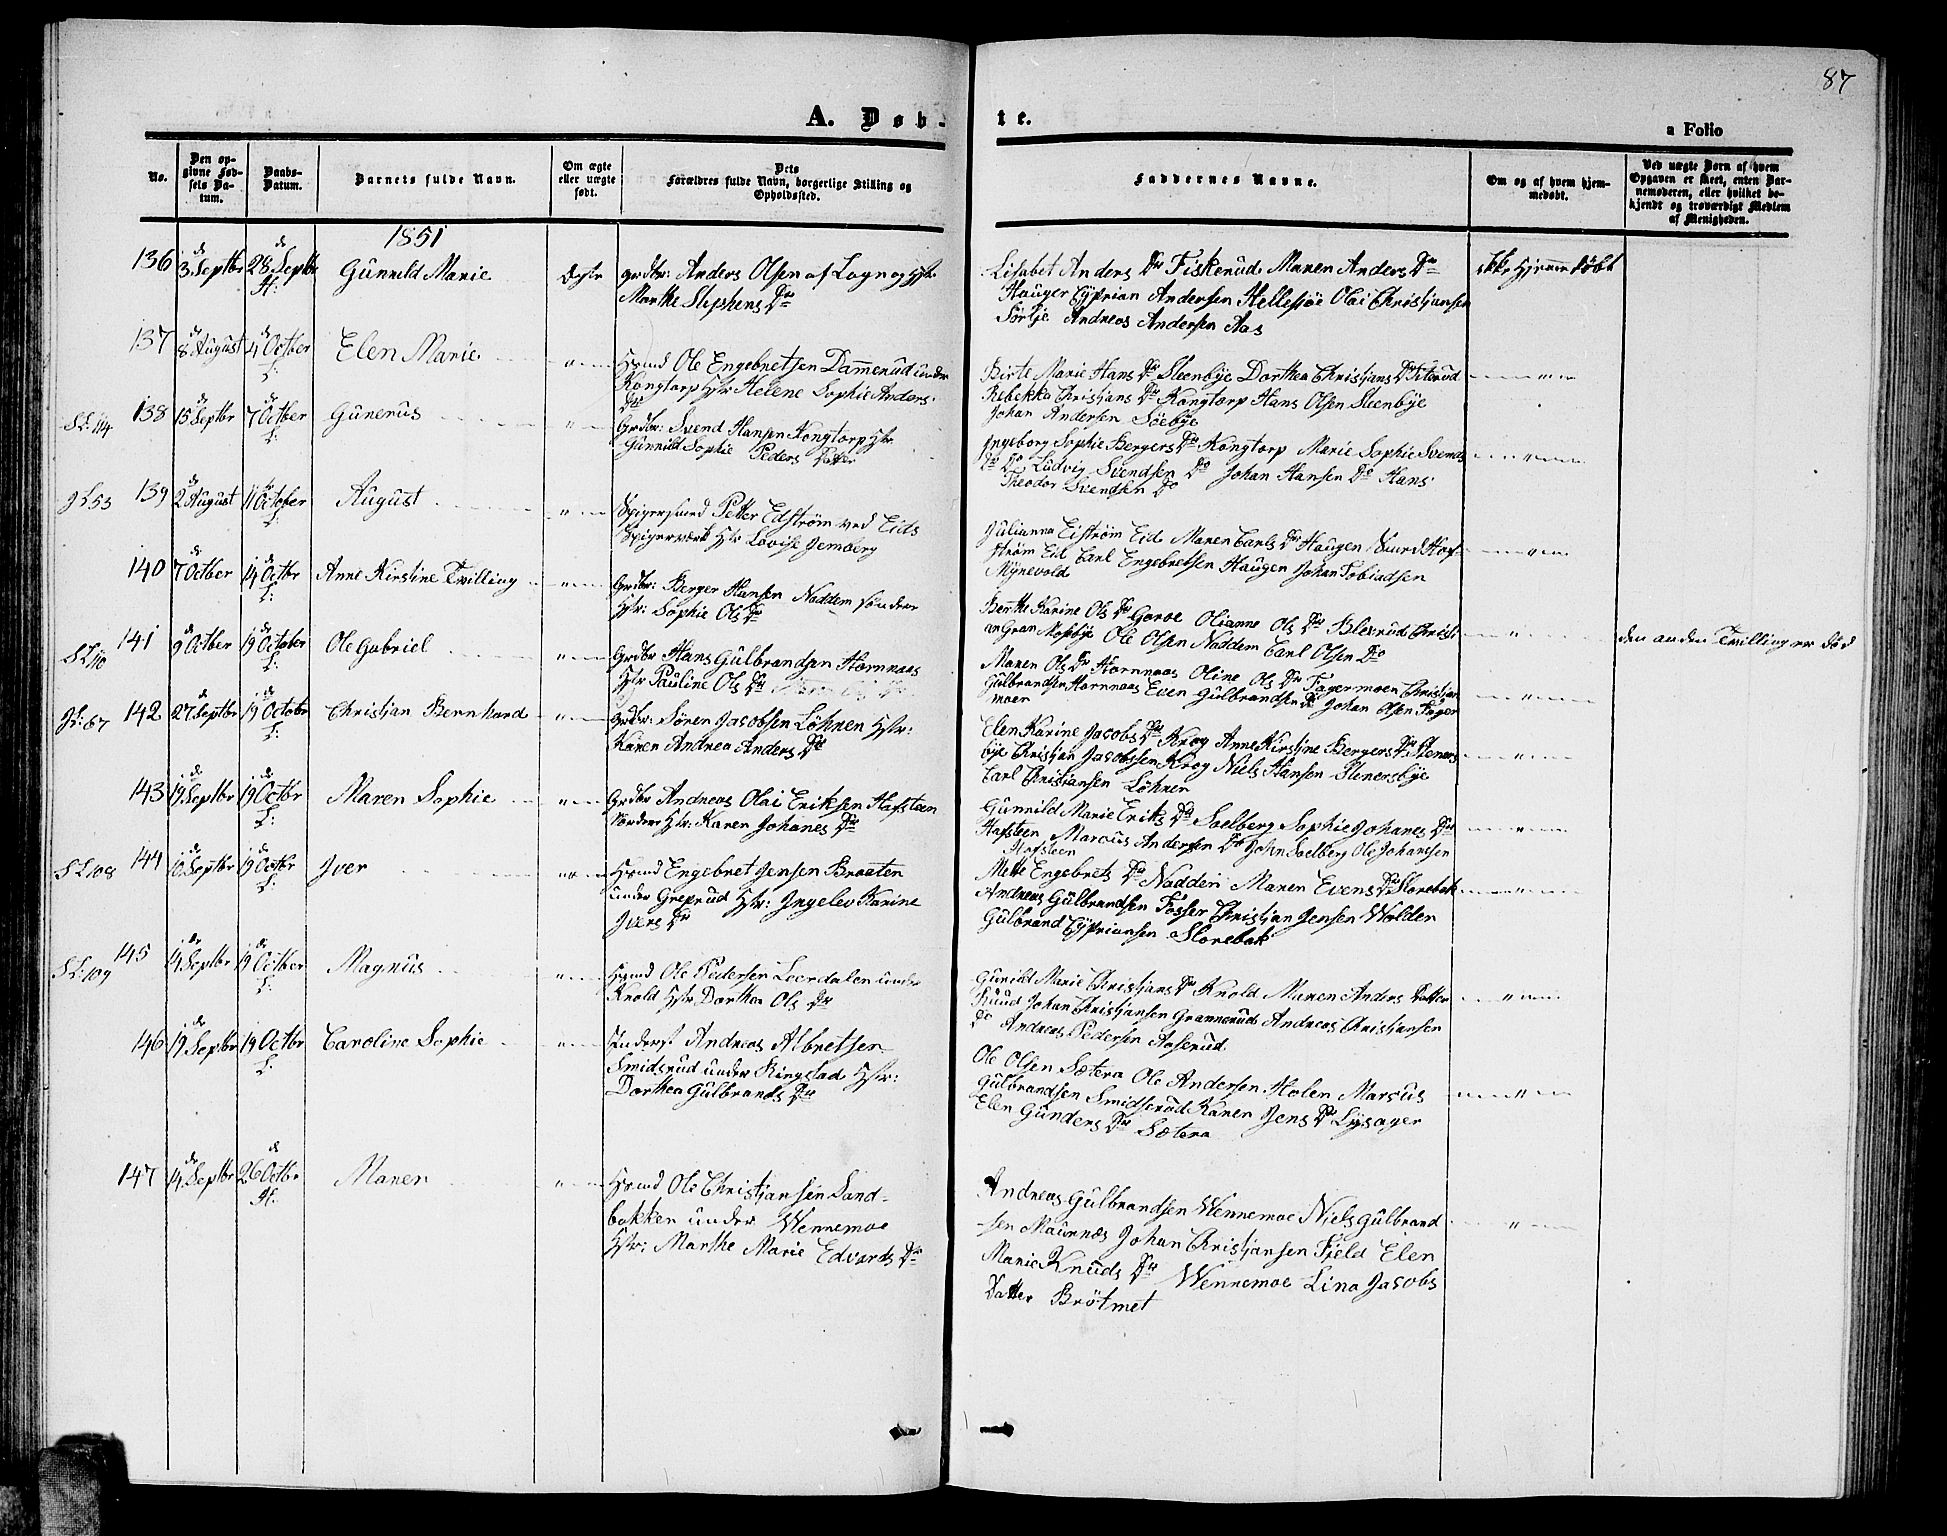 87
A. Døb-
te.
a Folio
No.
Den op-
givne Fød-
sels Da-
tum.
Daabs-
Datum.
Barnets fulde Navn.
Om ægte
eller uægte
født.
Dets
Forældres fulde Navn, borgerlige Stilling og
Opholdssted.
Faddernes Navne.
Om og af hvem hjem-
medøbt.
Ved uægte Børn af hvem
Opgaven er skeet, enten Bar-
nemoderen, eller hvilket be-
kjendt og troværdigt Medlem
af Menigheden.
1851
136 d 3 Septbr d 28 Septbr H: Gunnild Marie Ægte grdbr: Anders Olsen af Logn og Hstr
Marthe Stephens Dtr
Lisabet Anders Dtr Fiskerud Maren Anders Dtr
Hauger Cyprian Andersen Hellesjøe Olai Christjansen
Sørtje Andreas Andersen Aas
ikke hjemmedøbt
137 d 8 August d 4 Octber L: Elen Marie " Hsmd Ole Engebretsen Damerud under
Kongtorp Hstr Helene Sophie Anders
Dtr
Birte Marie Hans Dtr Steenbye Dorthea Christjans Dtr Titerud
Rebekka Christjans Dtr Kongtorp Hans Olsen Steenbye
Johan Andersen Søebye
"
SL: 114 138 d 15 Septbr d 7 Octber L: Gunerus " Grdbr: Svend Hansen Kongtorp Hstr
Gunnild Sophie Peders Datter
Ingeborg Sophie Bergers Dtr Kongtorp Marie Sophie Svends
Dtr Do Ludvig Svendsen Do Johan Hansen Do Hans
Theodor Svendsen Do
"
JL 53 139 d 2 August d 11 October L: August " Spigersmed Petter Edstrøm ved Eids
Spigerværk Hstr Lovise Jemberg
Julianna Eistrøm Eid Maren Carls Dtr Haugen
strøm Eid Carl Engebretsen Haugen Johan Tobiadsen
Mynevold
"
140 d 7 Octber d 14 Octbr L: Anne Kirstine Tvilling " Grdbr: Berger Hansen Noddem søndere
Hstr: Sophie Ols Dtr
Berthe Karine Ols Dtr Garoe Olianne Ols Dtr Blexrud Christi
an Gran Mosebye Ole Olsen Noddem Carl Olsen Do
"
den anden Tvilling er død
SL 110 141 d 9 Octber d 19 October L: Ole Gabriel " Grdbr Hans Gulbrandsen Hornnaes
Hstr Pauline Ols Dtr
Maren Ols Dtr Hornnaes Oline Ols Dtr Fagermoen Christjan
Gulbrandsen Hornnaes Even Gulbrandsen Do Johan Olsen Fager
moen
"
JL: 67 142 d 27 Septbr d 19 Octobr L: Christjan Bernhard " Grdbr: Søren Jacobsen Løhnen Hstr:
Karen Andrea Anders Dtr
Elen Karine Jacobs Dtr Krog Anne Kirstine Bergers Dtr Steners
bye Christjan Jacobsen Krog Niels Hansen Stenersbye
Carl Christjansen Løhnen
"
143 d 19 Septbr d 19 Octbr L: Maren Sophie " Grdbr Andreas Olai Eriksen Hafsteen
Nordere Hstr: Karen Johanes Dtr
Gunnild Marie Eriks Dtr Soelberg Sophie Johanes Dtr
Hafsteen Marcus Andersen Do John Soelberg Ole Johansen
Hofsteen
"
SL 108 144 d 10 Septbr d 19 Octbr L: Iver " Hsmd Engebret Jensen Braaten
under Greprud Hstr: Ingelev Karine
Ivers Dtr
Mette Engebrets Dtr Nodden Maren Evens Dtr Storebak
Andreas Gulbrandsen Fosser Christjan Jensen Wolden
Gulbrand Cyprianssen Storebak
"
SL: 109 145 d 14 Septbr d 19 Octber L: Magnus " Hsmd Ole Pedersen Leerdalen under
Knold Hstr. Dorthea Ols Dtr
Gunild Marie Christjans Dtr Knold Maren Anders Datter
Ruud Johan Christjansen Grannerud Andreas Christjansen
Do Andreas Pedersen Anserud
"
146 d 19 Septbr 19 Octbr L: Caroline Sophie " Inderst Andreas Albretsen
Smidsrud under Ringstad Hstr:
Dorthea Gulbrands Dtr
Ole Olsen Sætera Ole Andersen Holen Marcus
Gulbrandsen Smidserud Karen Jens Dtr Lysager
Elen Gunders Dtr Sætera
"
147 d 14 Septbr d 26 Octbr H: Maren " Hsmd Ole Christjansen Sand-
bakken under Wennemoe
Hstr: Marthe Marie Edvards Dtr
Andreas Gulbrandsen Wennemoe Niels Gulbrand
sen Maurnæs Johan Christjansen Fjeld Elen
Marie Knuds Dtr Wennemoe Lina Jacobs
Datter Brøtmet
"